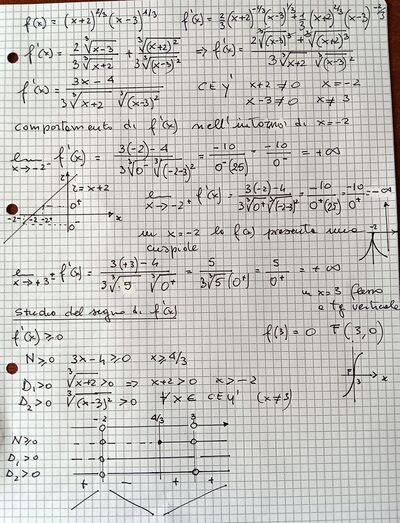 f(x) = (x+2)^{2/3} (x-3)^{1/3}   f'(x) = \frac{2}{3}(x+2)^{-1/3}(x-3)^{1/3} + \frac{1}{3}(x+2)^{2/3}(x-3)^{-2/3}
f'(x) = \frac{2\sqrt[3]{x-3}}{3\sqrt[3]{x+2}} + \frac{\sqrt[3]{(x+2)^2}}{3\sqrt[3]{(x-3)^2}} ⇒ f'(x) = \frac{2\sqrt[3]{(x-3)^3} + \sqrt[3]{(x+2)^3}}{3\sqrt[3]{x+2} \sqrt[3]{(x-3)^2}}
f'(x) = \frac{3x-4}{3\sqrt[3]{x+2} \sqrt[3]{(x-3)^2}}   CEy'   x+2 ≠ 0   x = -2
x-3 ≠ 0   x ≠ 3
comportamento di f'(x) nell'intorno di x = -2
lim_{x→-2^-} f'(x) = \frac{3(-2)-4}{3\sqrt[3]{0^-} \sqrt[3]{(-2-3)^2}} = \frac{-10}{0^-(25)} = \frac{-10}{0^-} = +∞
z
z = x+2
lim_{x→-2^+} f'(x) = \frac{3(-2)-4}{3\sqrt[3]{0^+} \sqrt[3]{(-2-3)^2}} = \frac{-10}{0^+(25)} = \frac{-10}{0^+} = -∞
0^+
-2^- -2 -2^+
0^-
x
in x = -2 la f(x) presenta una
cuspide
-2
lim_{x→+3^±} f'(x) = \frac{3(+3)-4}{3\sqrt[3]{5} \sqrt[3]{0^+}} = \frac{5}{3\sqrt[3]{5}(0^+)} = \frac{5}{0^+} = +∞
in x = 3 flesso
a tg verticale
Studio del segno di f'(x)
f'(x) ≥ 0   f(3) = 0   F(3, 0)
N ≥ 0   3x-4 ≥ 0   x ≥ 4/3
D_1 > 0   \sqrt[3]{x+2} > 0 ⇒ x+2 > 0   x > -2
D_2 > 0   \sqrt[3]{(x-3)^2} > 0   ∀x ∈ CEy'   (x ≠ 3)
F
3
x
-2   4/3   3
N ≥ 0
D_1 > 0
D_2 > 0
+   -   +   +